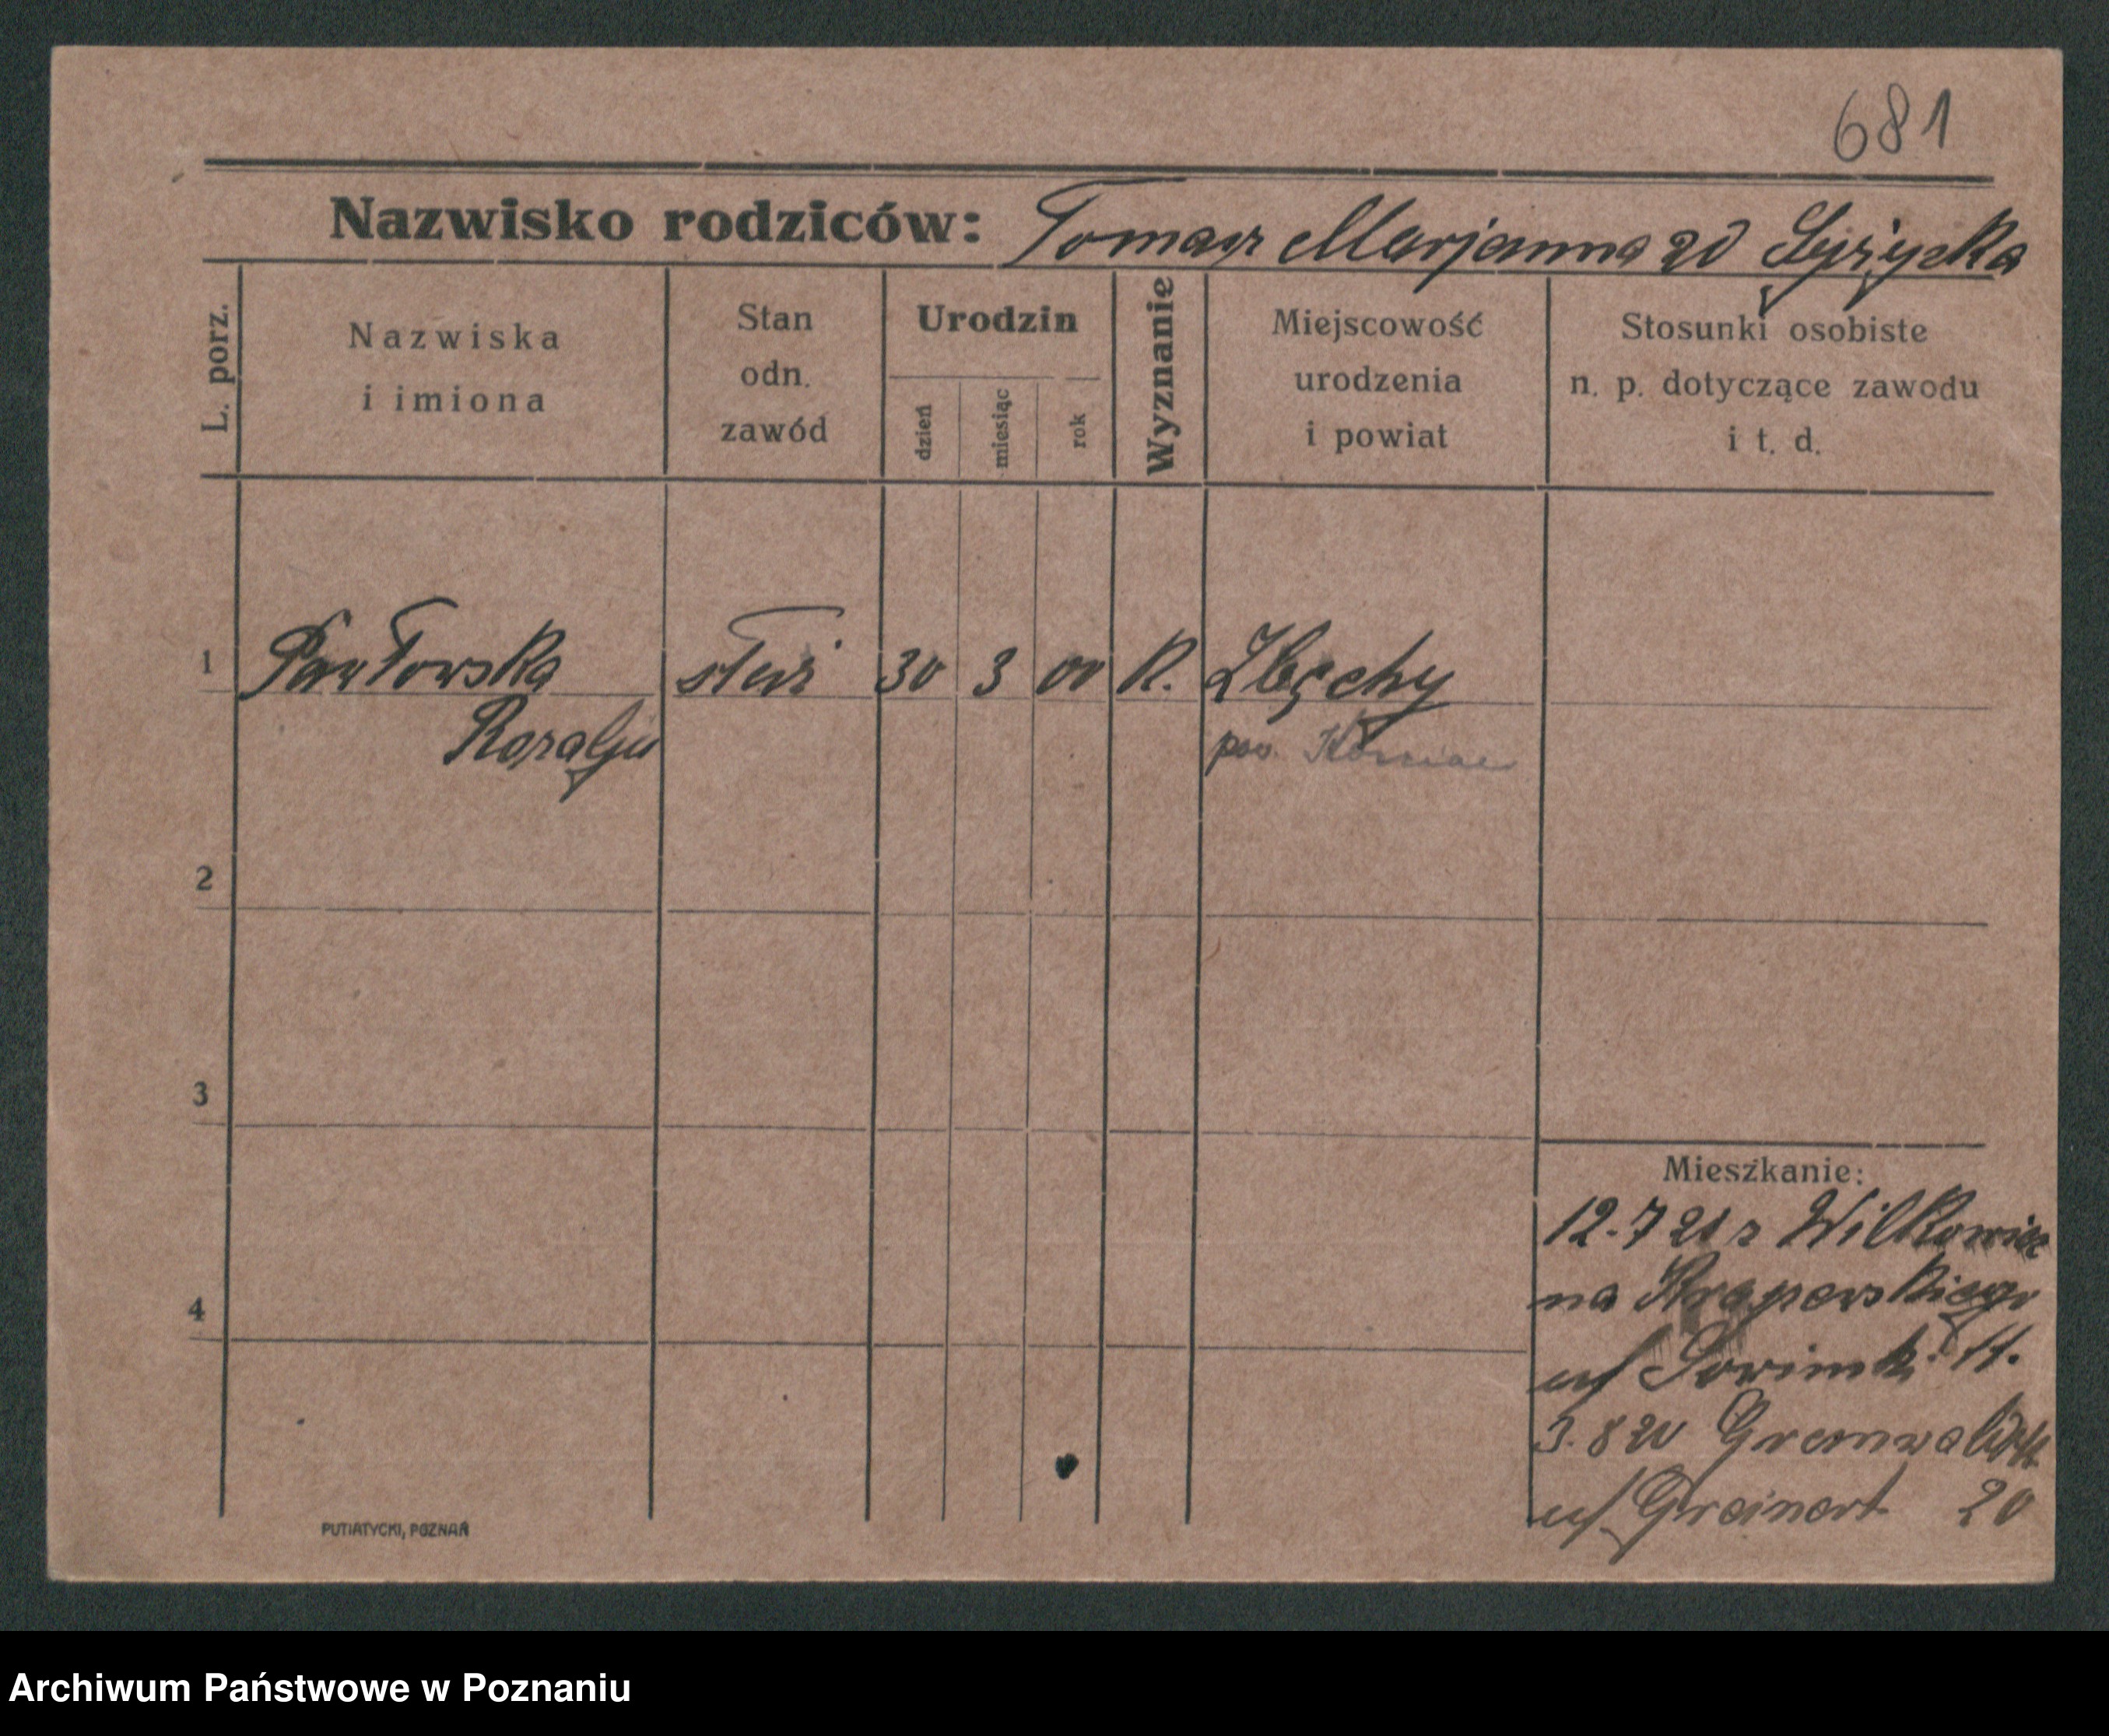 681
Nazwisko rodziców: Tomasz Marjanna zd
L. porz.
Nazwiska
i imiona
Stan
odn.
zawód
Urodzin
dzień
miesiąc
rok
Wyznanie
Miejscowość
urodzenia
i powiat
Stosunki osobiste
n. p. dotyczące zawodu
i t. d.
1 Pawłowska 30 3 00 R. Zbęchy
Rozalja pow.
2
3
4
Mieszkanie:
12.7 21 z Wilkowic
na
11.
3.8 21
u/ Greinert 20
PUTIATYCKI, POZNAŃ
Archiwum Państwowe w Poznaniu